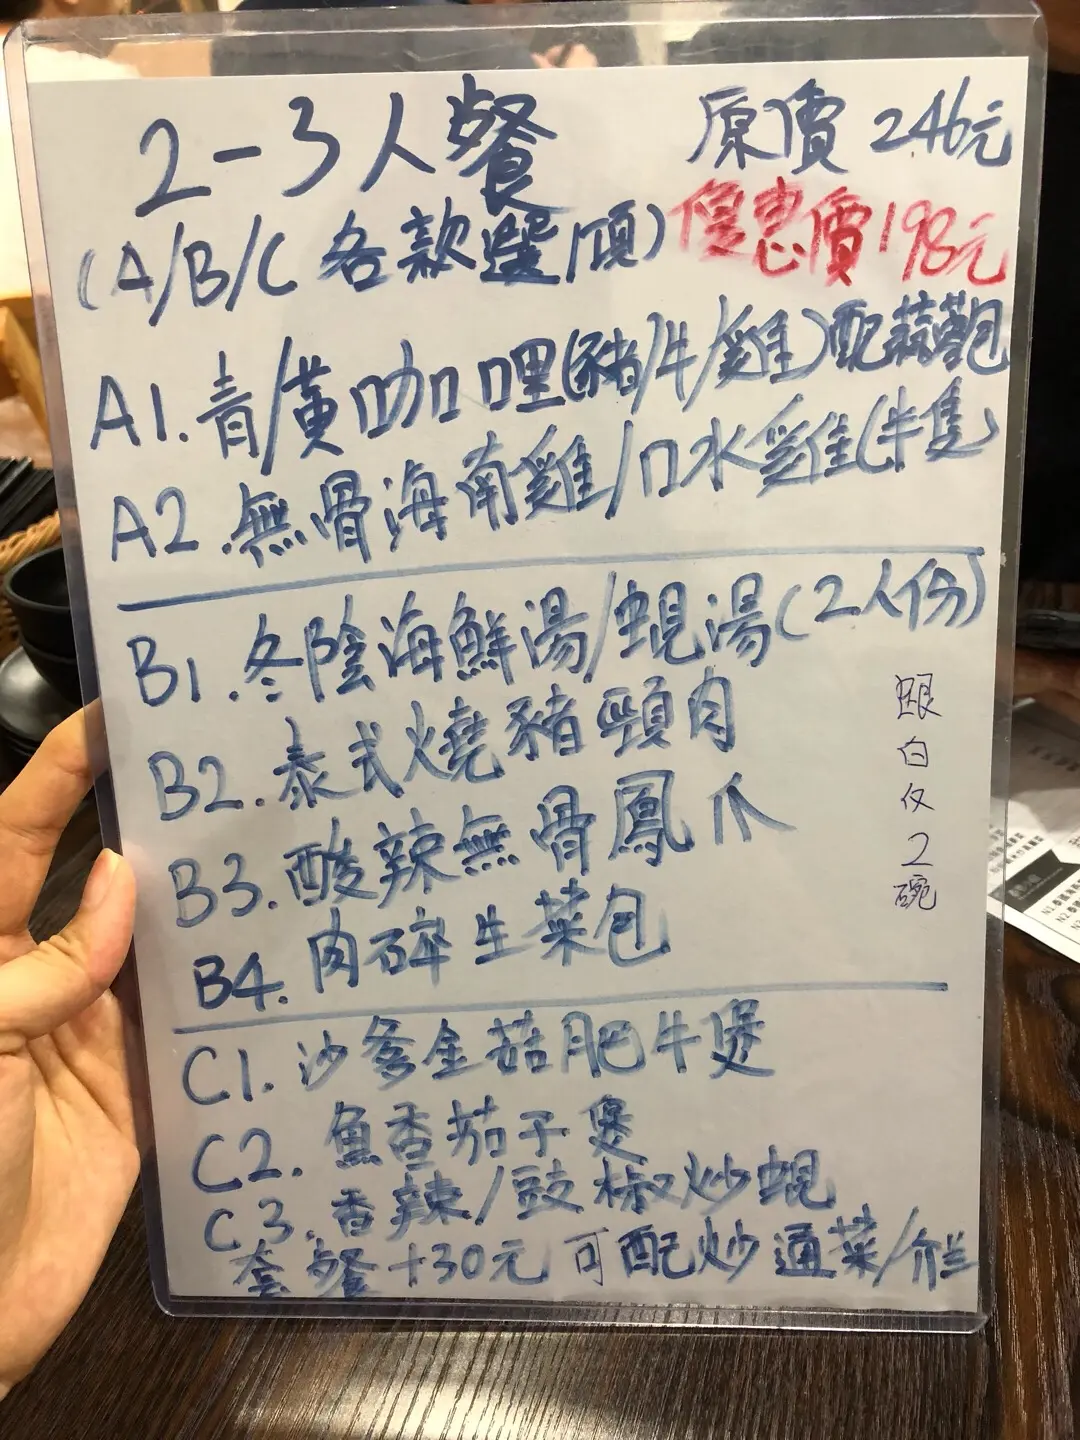 2-3人餐
原價 246元
(A/B/C 各款選1項)
優惠價198元
A1.青/黃咖哩(豬/牛/雞)配蒜蓉包
A2.無骨海南雞/口水雞(半隻
B1.冬陰海鮮湯/蜆湯(2人份)
B2.泰式燒豬頸肉
B3.酸辣無骨鳳爪
B4.肉碎生菜包
跟白仅2碗
C1.沙爹金菇肥牛煲
C2.魚香茄子煲
C3.香辣/豉椒炒蜆
套餐+30元可配炒通菜/介兰